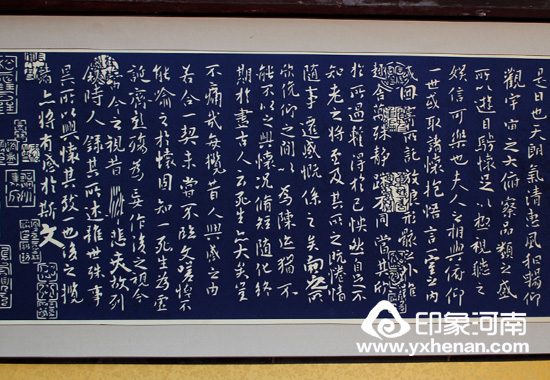 是日也天朗氣清惠風和暢仰
觀宇宙之大俯察品類之盛
所以遊目騁懷足以極視聽之
娛信可樂也夫人之相與俯仰
一世或取諸懷抱悟言一室之內
或因寄所託放浪形骸之外雖
趣舍萬殊靜躁不同當其欣
於所遇暫得於己快然自足不
知老之將至及其所之既惓情
隨事遷感慨係之矣向之所
欣俛仰之間以為陳迹猶不
能不以之興懷況脩短隨化終
期於盡古人云死生亦大矣豈
不痛哉每攬昔人興感之由
若合一契未嘗不臨文嗟悼不
能喻之於懷固知一死生為虛
誕齊彭殤為妄作後之視今
亦由今之視昔悲夫故列
敘時人錄其所述雖世殊事
異所以興懷其致一也後之攬
者亦將有感於斯文
印象河南
www.yxhenan.com